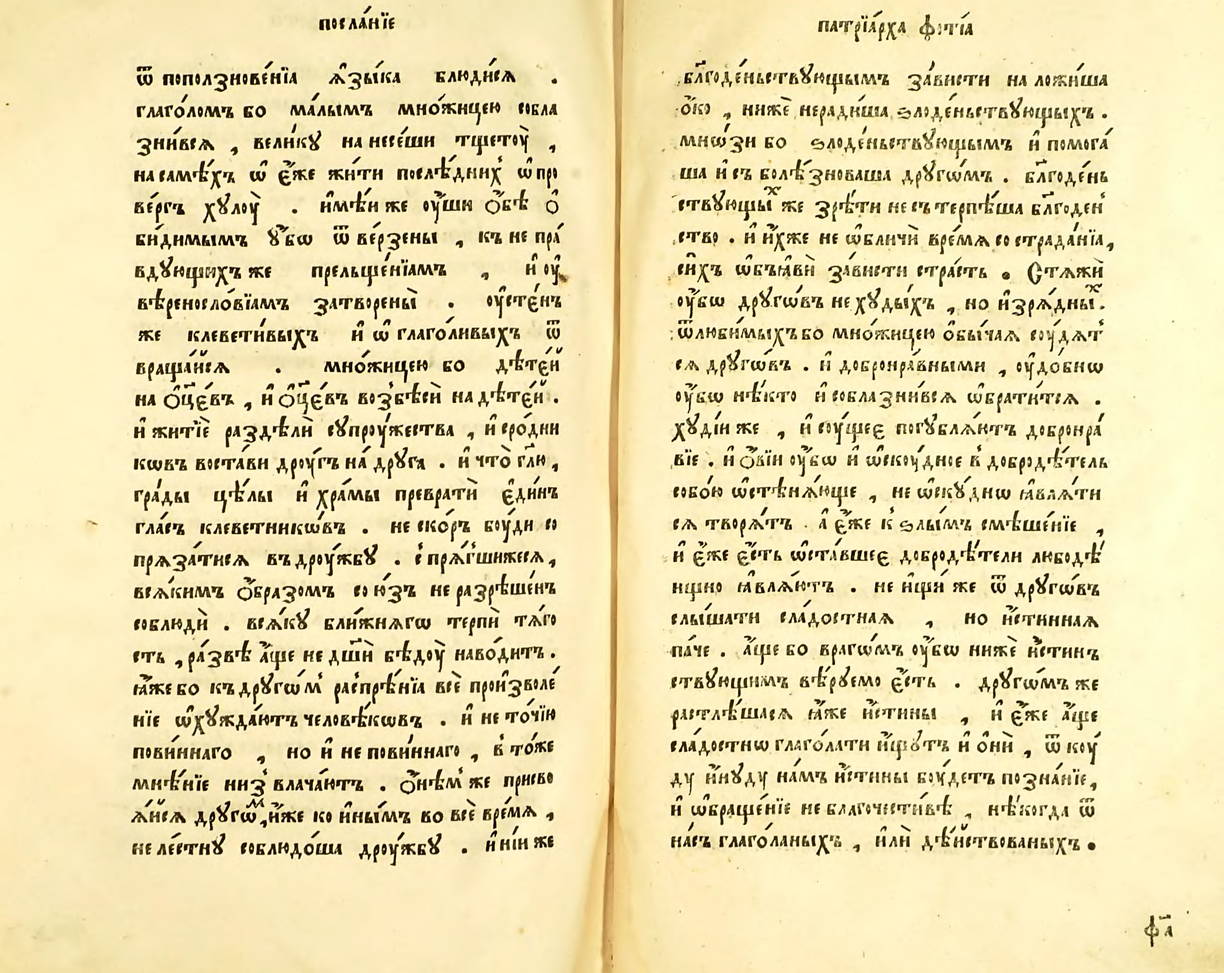 посла́нїе
ѿ поползнове́нїѧ ѧ҆зы́ка блюди́сѧ .
глаго́ломъ бо ма́лымъ мно́жицею собла
зни́всѧ , вели́кꙋ на несе́ши тщетоу̀ ,
на самѣ́хъ ѡ҆ є҆́же жи́ти послѣ́дних̾ ѡ҆ про
ве́ргъ хꙋлоу̀ . и҆мѣ́и же оу҆́ши ѻ҆́бѣ ѻ҆
би́димымъ ᲂу҆́бѡ ѿ ве́рзены , къ не пра́
вдꙋющихъ же прельще́нїамъ , и҆ оу҆
вѣ́реносло́вїамъ затворены̀ . оу҆сте́нъ
же клевети́выхъ и҆ ѡ҆ глаго́ливыхъ ѿ
враща́йсѧ . мно́жицею бо дѣте́й
на ѻ҆ц҃е́въ , и҆ ѻ҆ц҃е́въ воз̾бѣсѝ на дѣте́й .
и҆ житїѐ раздѣлѝ сꙋпроу́жества , и҆ сро́дни
кѡвъ воста́ви дроу́гъ на́ дрꙋга . и҆ что̀ гл҃ю ,
гра́ды цѣ́лы и҆ хра́мы превратѝ є҆ди́нъ
гла́съ клеветникѡ́въ . не ско́ръ боу́ди со
прѧза́тисѧ въ дроу́жбꙋ . с̾ прѧ́гшижесѧ ,
всѧ́кимъ ѻ҆́бразомъ сою́зъ не разрѣше́нъ
соблюдѝ . всѧ́кꙋ бли́жнѧгѡ терпѝ тѧ́го
сть , ра́звѣ а҆́ще не дш҃ѝ бѣдоу̀ наво́дитъ .
ꙗ҆́же бо къ дрꙋгѡ́м̾ распрѣ́нїа всѐ произволе́
нїе ѡ҆хꙋжда́ютъ человѣ́кѡвъ . и҆ не то́чїю
пови́ннаго , но и҆ не пови́ннаго , в̾ то́же
мнѣ́нїе низ̾ влача́ютъ . ѻ҆́нѣм̾ же присво
ѧ́йсѧ дрꙋгѡ́м , и҆́же ко и҆ны́мъ во всѐ вре́мѧ ,
не ле́стнꙋ соблюдо́ша дроу́жбꙋ . и҆ ни́ же
патрїа́рха фѡ́тїа
бл҃годе́ньствꙋющымъ за́висти на ложи́ша
о҆́ко , нижѐ неради́ша ѕлоде́ньствꙋющыхъ .
мнѡ́зи бо ѕлоде́ньствꙋющымъ и҆ помога́
ша и҆ съ болѣ́зноваша дрꙋгѡ́мъ . бл҃годе́нь
ствꙋющы́х же зрѣ́ти не съ терпѣ́ша бл҃годен̾
ство . и҆ и҆́хже не ѡ҆бличѝ вре́мѧ со страда́нїа ,
си́хъ ѡ҆бъѧвѝ за́висти стра́сть . Стѧжѝ
оу҆́бѡ дрꙋгѡ́въ не хꙋды́хъ , но и҆зрѧ́дны́х .
ѿ люби́мыхъ бо мно́жицею ѻ҆бы́чаѧ соу́дѧт̾
сѧ дрꙋгѡ́въ . и҆ доброира́вными , оу҆до́бнѡ
оу҆́бѡ нѣ́кто и҆ соблазни́всѧ ѡ҆брати́тсѧ .
хꙋді́и же , и҆ соу́щеє погꙋблѧ́ютъ добронра́
вїе . и҆ ѻ҆ві́и оу҆́бѡ и҆ ѡ҆скоу́дное в̾ добродѣ́тель
собо́ю ѡ҆стѣнѧ́юще , не ѡ҆скꙋ́днѡ ꙗ҆влѧ́ти
сѧ творѧ́тъ . а҆ є҆́же к̾ ѕлы́мъ смѣше́нїе ,
и҆ є҆́же є҆́сть ѡ҆ста́вшеє добродѣ́тели любодѣ́
ищно ꙗ҆влѧ́ютъ . не и҆щѝ же ѿ дрꙋгѡ́въ
слы́шати сла́достнаѧ , но и҆́стиннаѧ
па́че . а҆́ще бо врагѡ́мъ оу҆́бѡ нижѐ и҆́стин
ствꙋющимъ вѣ́рꙋемо є҆́сть . дрꙋгѡ́мъ же
растлѣ́шасѧ ꙗ҆́же и҆́стины , и҆ є҆́же а҆́ще
сла́достнѡ глаго́лати и҆́щꙋтъ и҆ ѻ҆нѝ , ѿ коу́
дꙋ и҆нꙋ́дꙋ на́мъ и҆́стины боу́детъ позна́нїе ,
и҆ ѡ҆браще́нїе не благочести́вѣ , нѣ́когда ѿ
на́съ глаго́ланыхъ , и҆лѝ дѣ́йствованыхъ .
ф҃а